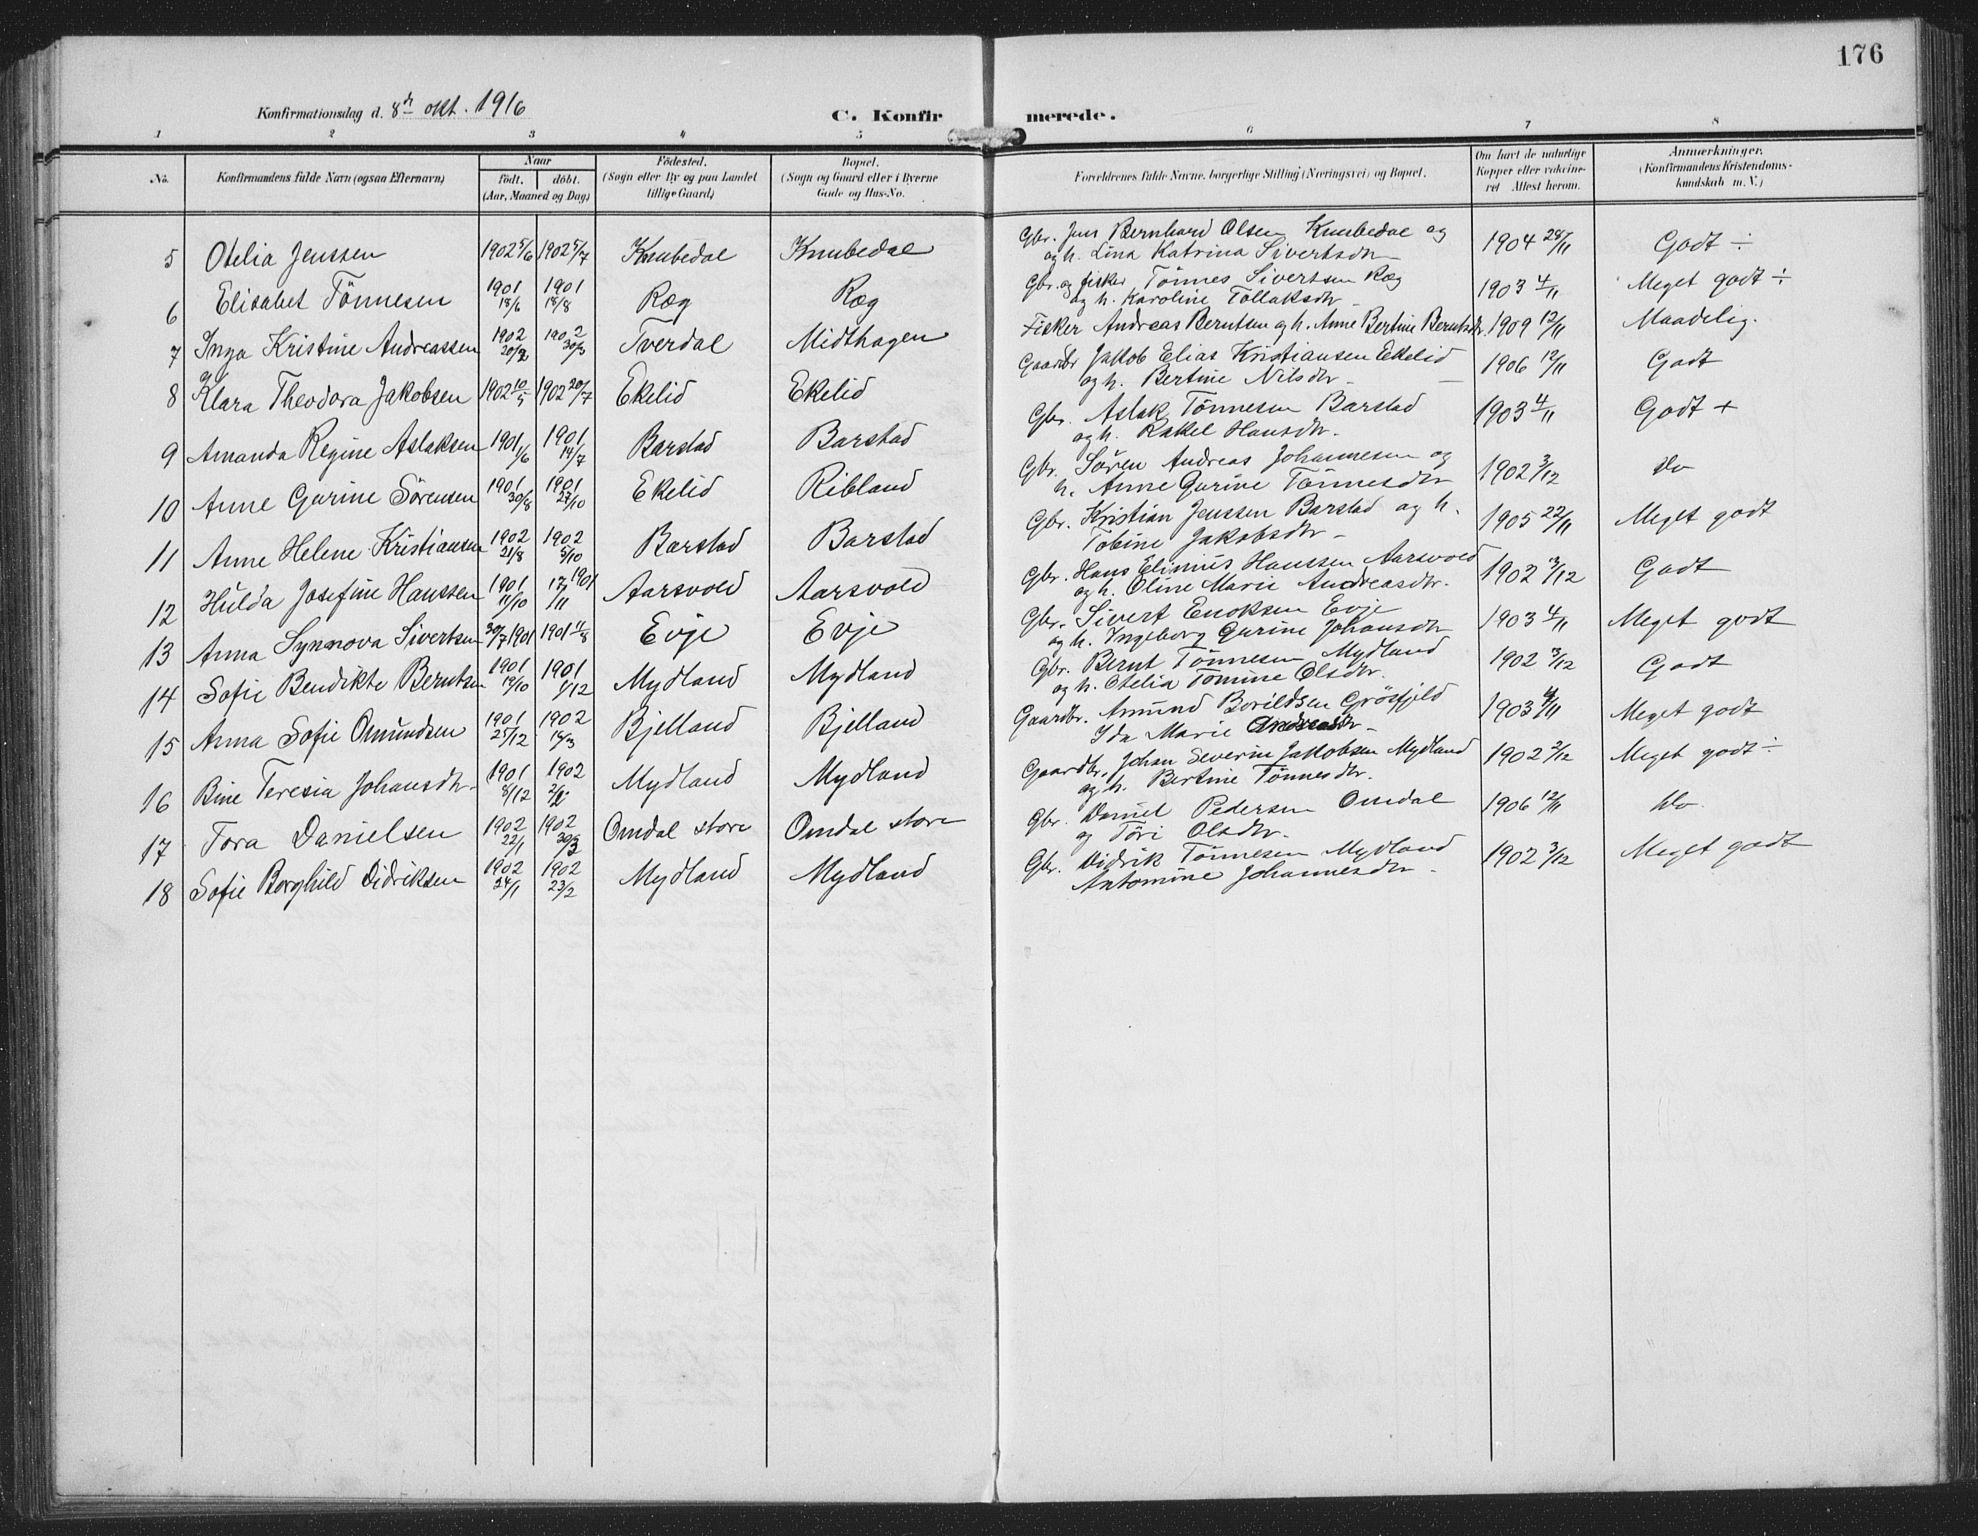 176
Konfirmationsdag d. 8de okt. 1916 C. Konfirmerede.
1 2 3 4 5 6 7 8
No. Konfirmandens fulde Navn (ogsaa Efternavn) Naar født. døbt. (Aar, Maaned og Dag) Fødested. (Sogn eller By og paa Landet tillige Gaard) Bopæl. (Sogn og Gaard eller i Byerne Gade og Hus-No. Forældrenes fulde Navne, borgerlige Stilling (Næringsvei) og Bopæl. Om havt de naturlige Kopper eller vakcineret Attest herom. Anmærkninger. (Konfirmandens Kristendomskundskab m. V.)
5 Otelia Jenssen 1902 5/6 1902 5/7 Knubedal Knubedal Gbr. Jens Bernhard Olsen Knubedal og
og h. Lina Katrina Sivertsdtr 1904 28/11 Godt ÷
6 Elisabet Tönnesen 1901 18/6 1901 18/8 Ræg Ræg Gbr. og fisker Tönnes Sivertsen Ræg
og h. Karoline Tollaksdtr 1903 4/11 Meget godt ÷
7 Inga Kristine Andreassen 1902 20/2 1902 30/3 Tverdal Midthagen Fisker Andreas Berntsen og h. Anne Bertine Berntsdtr. 1909 12/11 Maadelig.
8 Klara Theodora Jakobsen 1902 10/5 1902 20/7 Ekelid Ekelid Gaardbr Jakob Elias Kristiansen Ekelid
og h. Bertine Nilsdtr 1906 12/11 Godt
9 Amanda Regine Aslaksen 1901 1/6 1901 14/7 Barstad Barstad Gbr. Aslak Tönnesen Barstad
og h. Rakel Hansdtr. 1903 4/11 Godt +
10 Anne Gurine Sörensen 1901 30/8 1901 27/10 Ekelid Ribland Gbr. Sören Andreas Johannesen og
h. Anne Gurine Tönnesdtr 1902 3/12 do
11 Anne Helene Kristiansen 1902 21/8 1902 5/10 Barstad Barstad Gbr. Kristian Jenssen Barstad og h.
Tobine Jakobsdtr 1905 22/11 Meget godt
12 Hulda Josefine Hanssen 1901 11/10 17/11 1901 Aarsvold Aarsvold Gbr. Hans Elinius Hanssen Aarsvold
og h. Oline Marie Andreasdtr. 1902 3/12 Godt
13 Anna Synnova Sivertsen 30/7 1901 1901 11/8 Evje Evje Gbr. Sivert Enoksen Evje
og h. Ingeborg Gurine Johansdtr 1903 4/11 Meget godt
14 Sofie Bendikte Berntsen 1901 19/10 1901 1/12 Mydland Mydland Gbr. Bernt Tönnesen Mydland
og h. Otelia Tomine Olsdtr. 1902 3/12 Godt
15 Anna Sofie Omundsen 1901 25/12 1902 14/3 Bjelland Bjelland Gaardbr. Amund Borildsen Grösfjeld
Ida Marie Andreasdtr 1903 4/11 Meget godt
16 Bine Teresia Johansdtr 1901 8/12 1902 2/2 Mydland Mydland Gaardbr. Johan Severin Jakobsen Mydland
og h. Bertine Tönnesdtr. 1902 3/12 Meget godt ÷
17 Tora Danielsen 1902 22/1 1902 30/3 Omdal store Omdal store Gbr. Daniel Pedersen Omdal
og Töri Olsdtr. 1906 12/11 do
18 Sofie Borghild Didriksen 1902 24/1 1902 23/2 Mydland Mydland Gbr. Didrik Tönnesen Mydland
Antomine Johannesdtr 1902 3/12 Meget godt